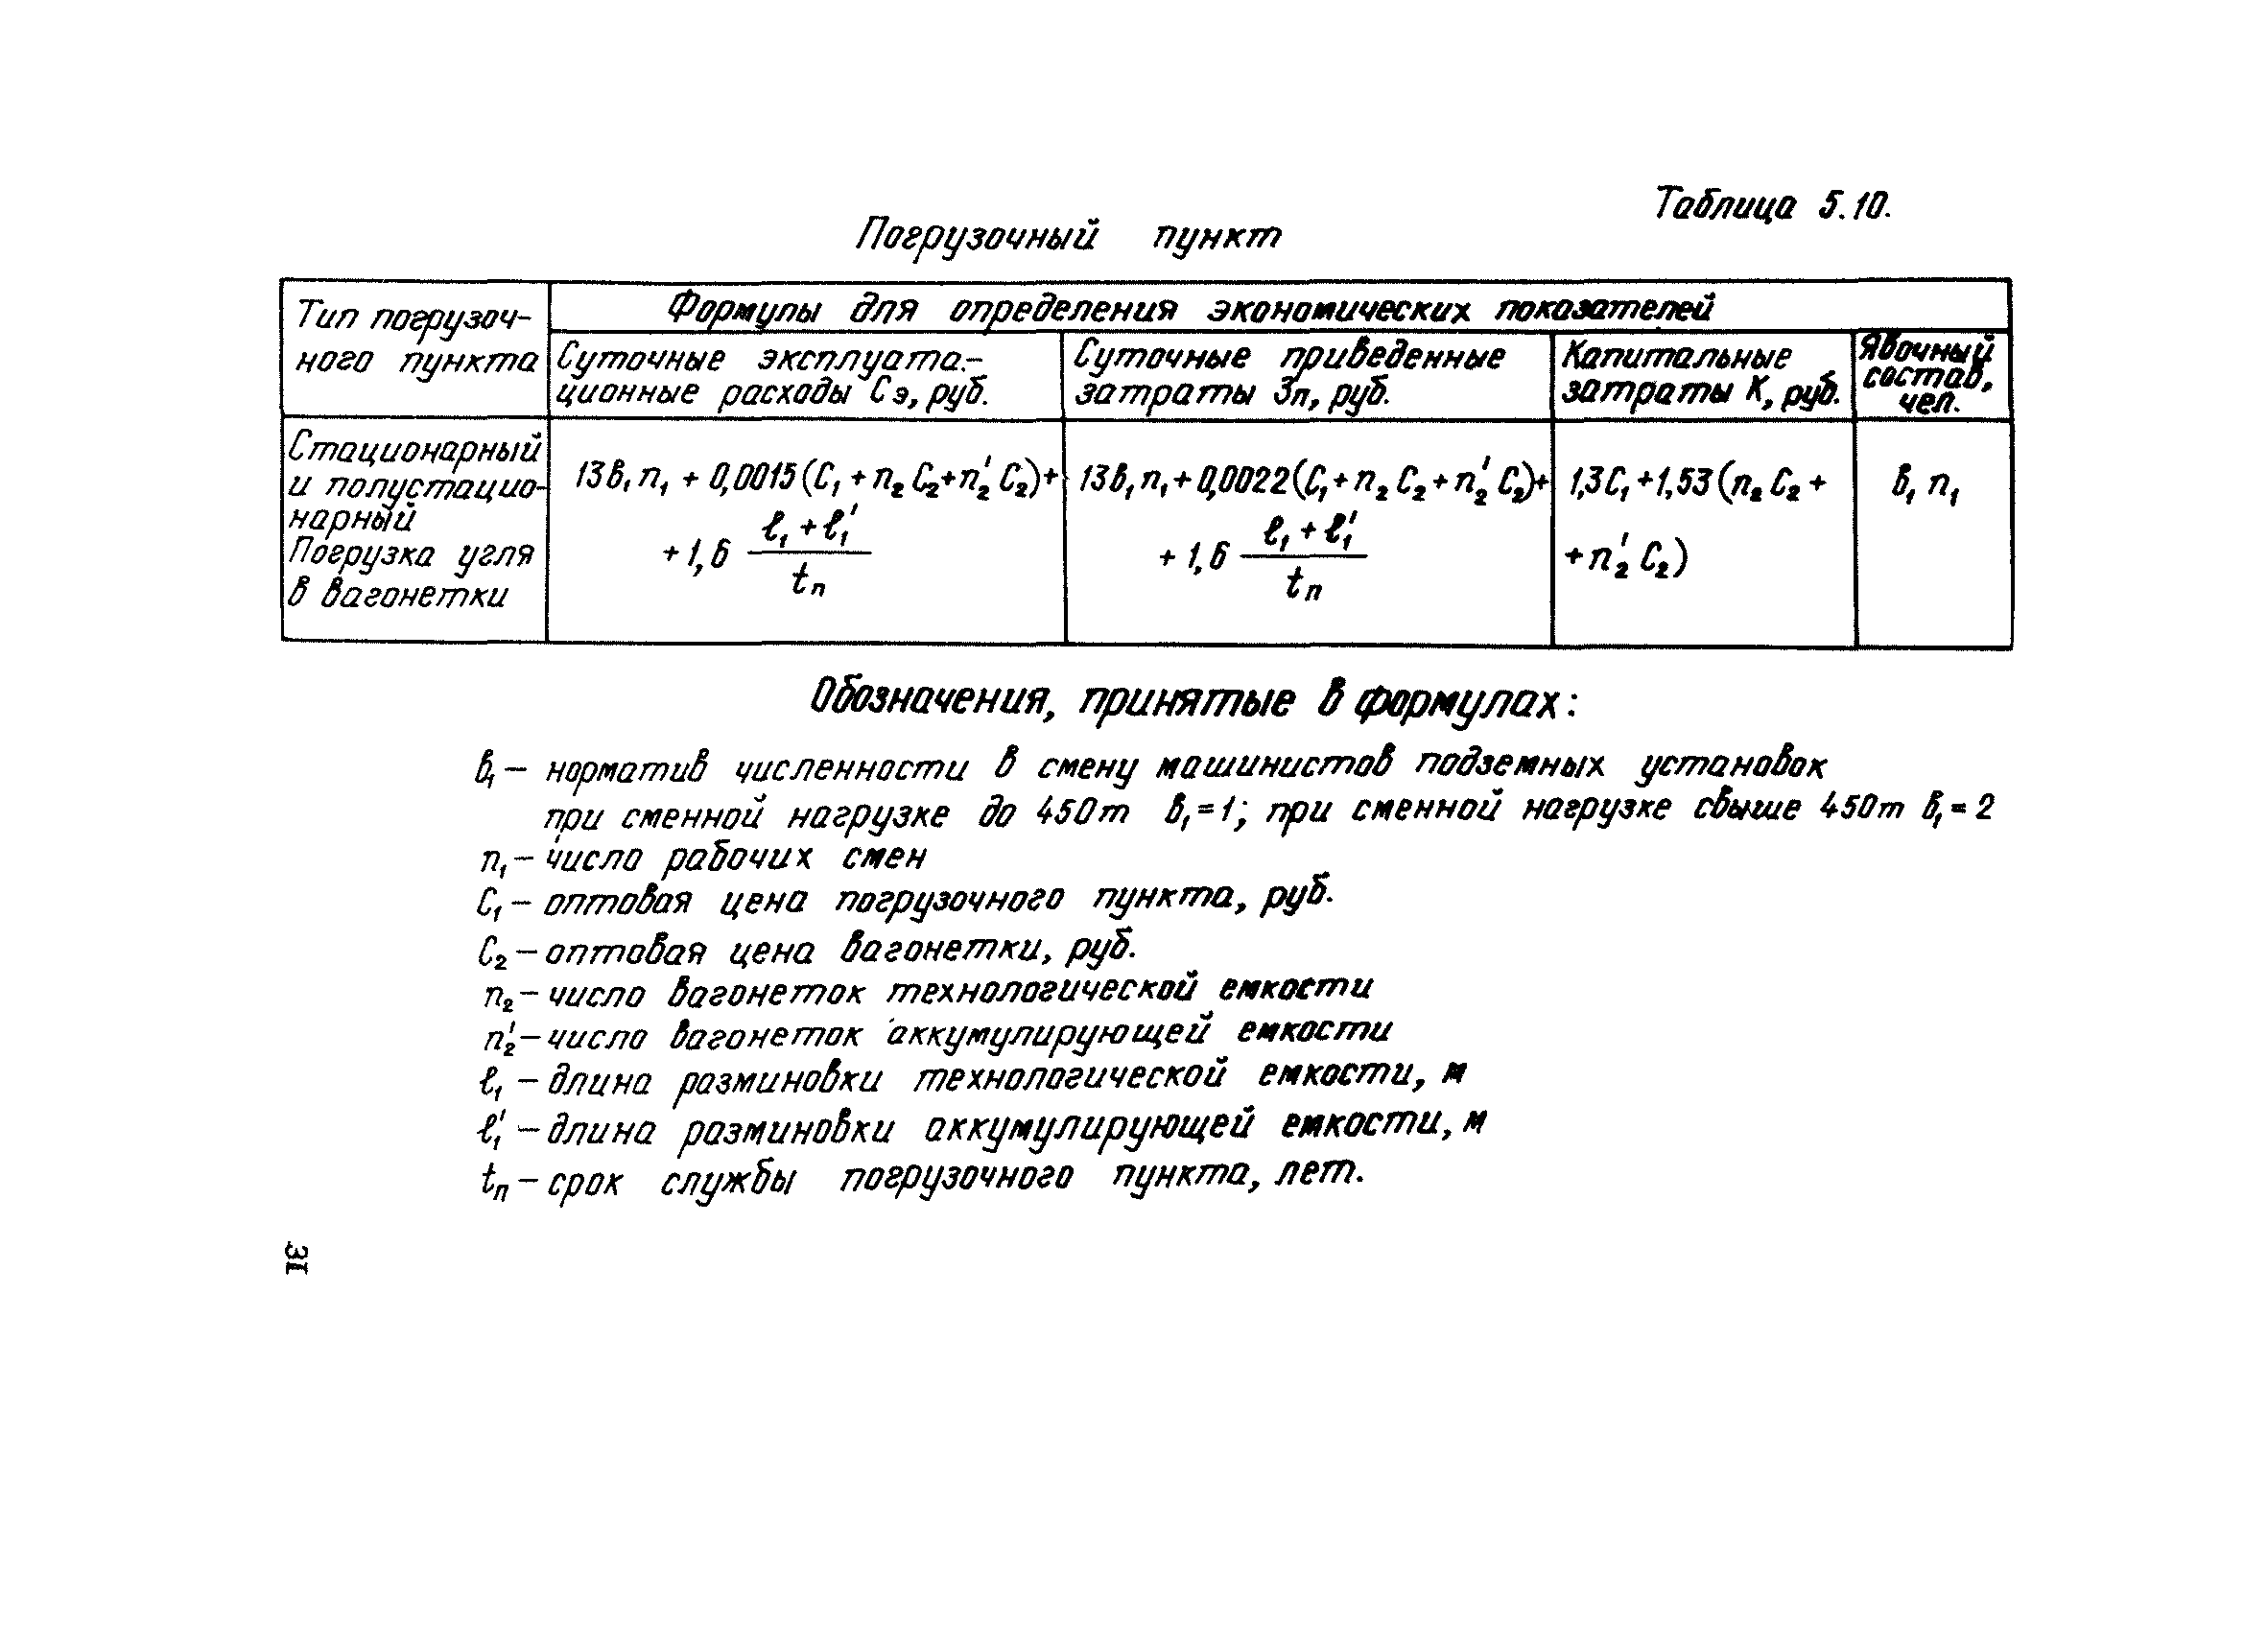 Таблица 5.10.
Погрузочный пункт
Тип погрузоч-
ного пункта
Формулы для определения экономических показателей
Суточные эксплуата-
ционные расходы Сэ, руб.
Суточные приведенные
затраты Зп, руб.
Капитальные
затраты К, руб.
Явочный
состав,
чел.
Стационарный
и полустацио-
нарный
Погрузка угля
в вагонетки
13в₁n₁ + 0,0015(С₁ + n₂ С₂ + n₂′ С₂) +
+ 1,6 (ℓ₁ + ℓ₁′) / tп
13в₁n₁ + 0,0022(С₁ + n₂ С₂ + n₂′ С₂) +
+ 1,6 (ℓ₁ + ℓ₁′) / tп
1,3С₁ + 1,53(n₂ С₂ +
+ n₂′ С₂)
в₁ n₁
Обозначения, принятые в формулах:
в₁ – норматив численности в смену машинистов подземных установок
при сменной нагрузке до 450т в₁ = 1; при сменной нагрузке свыше 450т в₁ = 2
n₁ – число рабочих смен
С₁ – оптовая цена погрузочного пункта, руб.
С₂ – оптовая цена вагонетки, руб.
n₂ – число вагонеток технологической емкости
n₂′ – число вагонеток аккумулирующей емкости
ℓ₁ – длина разминовки технологической емкости, м
ℓ₁′ – длина разминовки аккумулирующей емкости, м
tп – срок службы погрузочного пункта, лет.
31